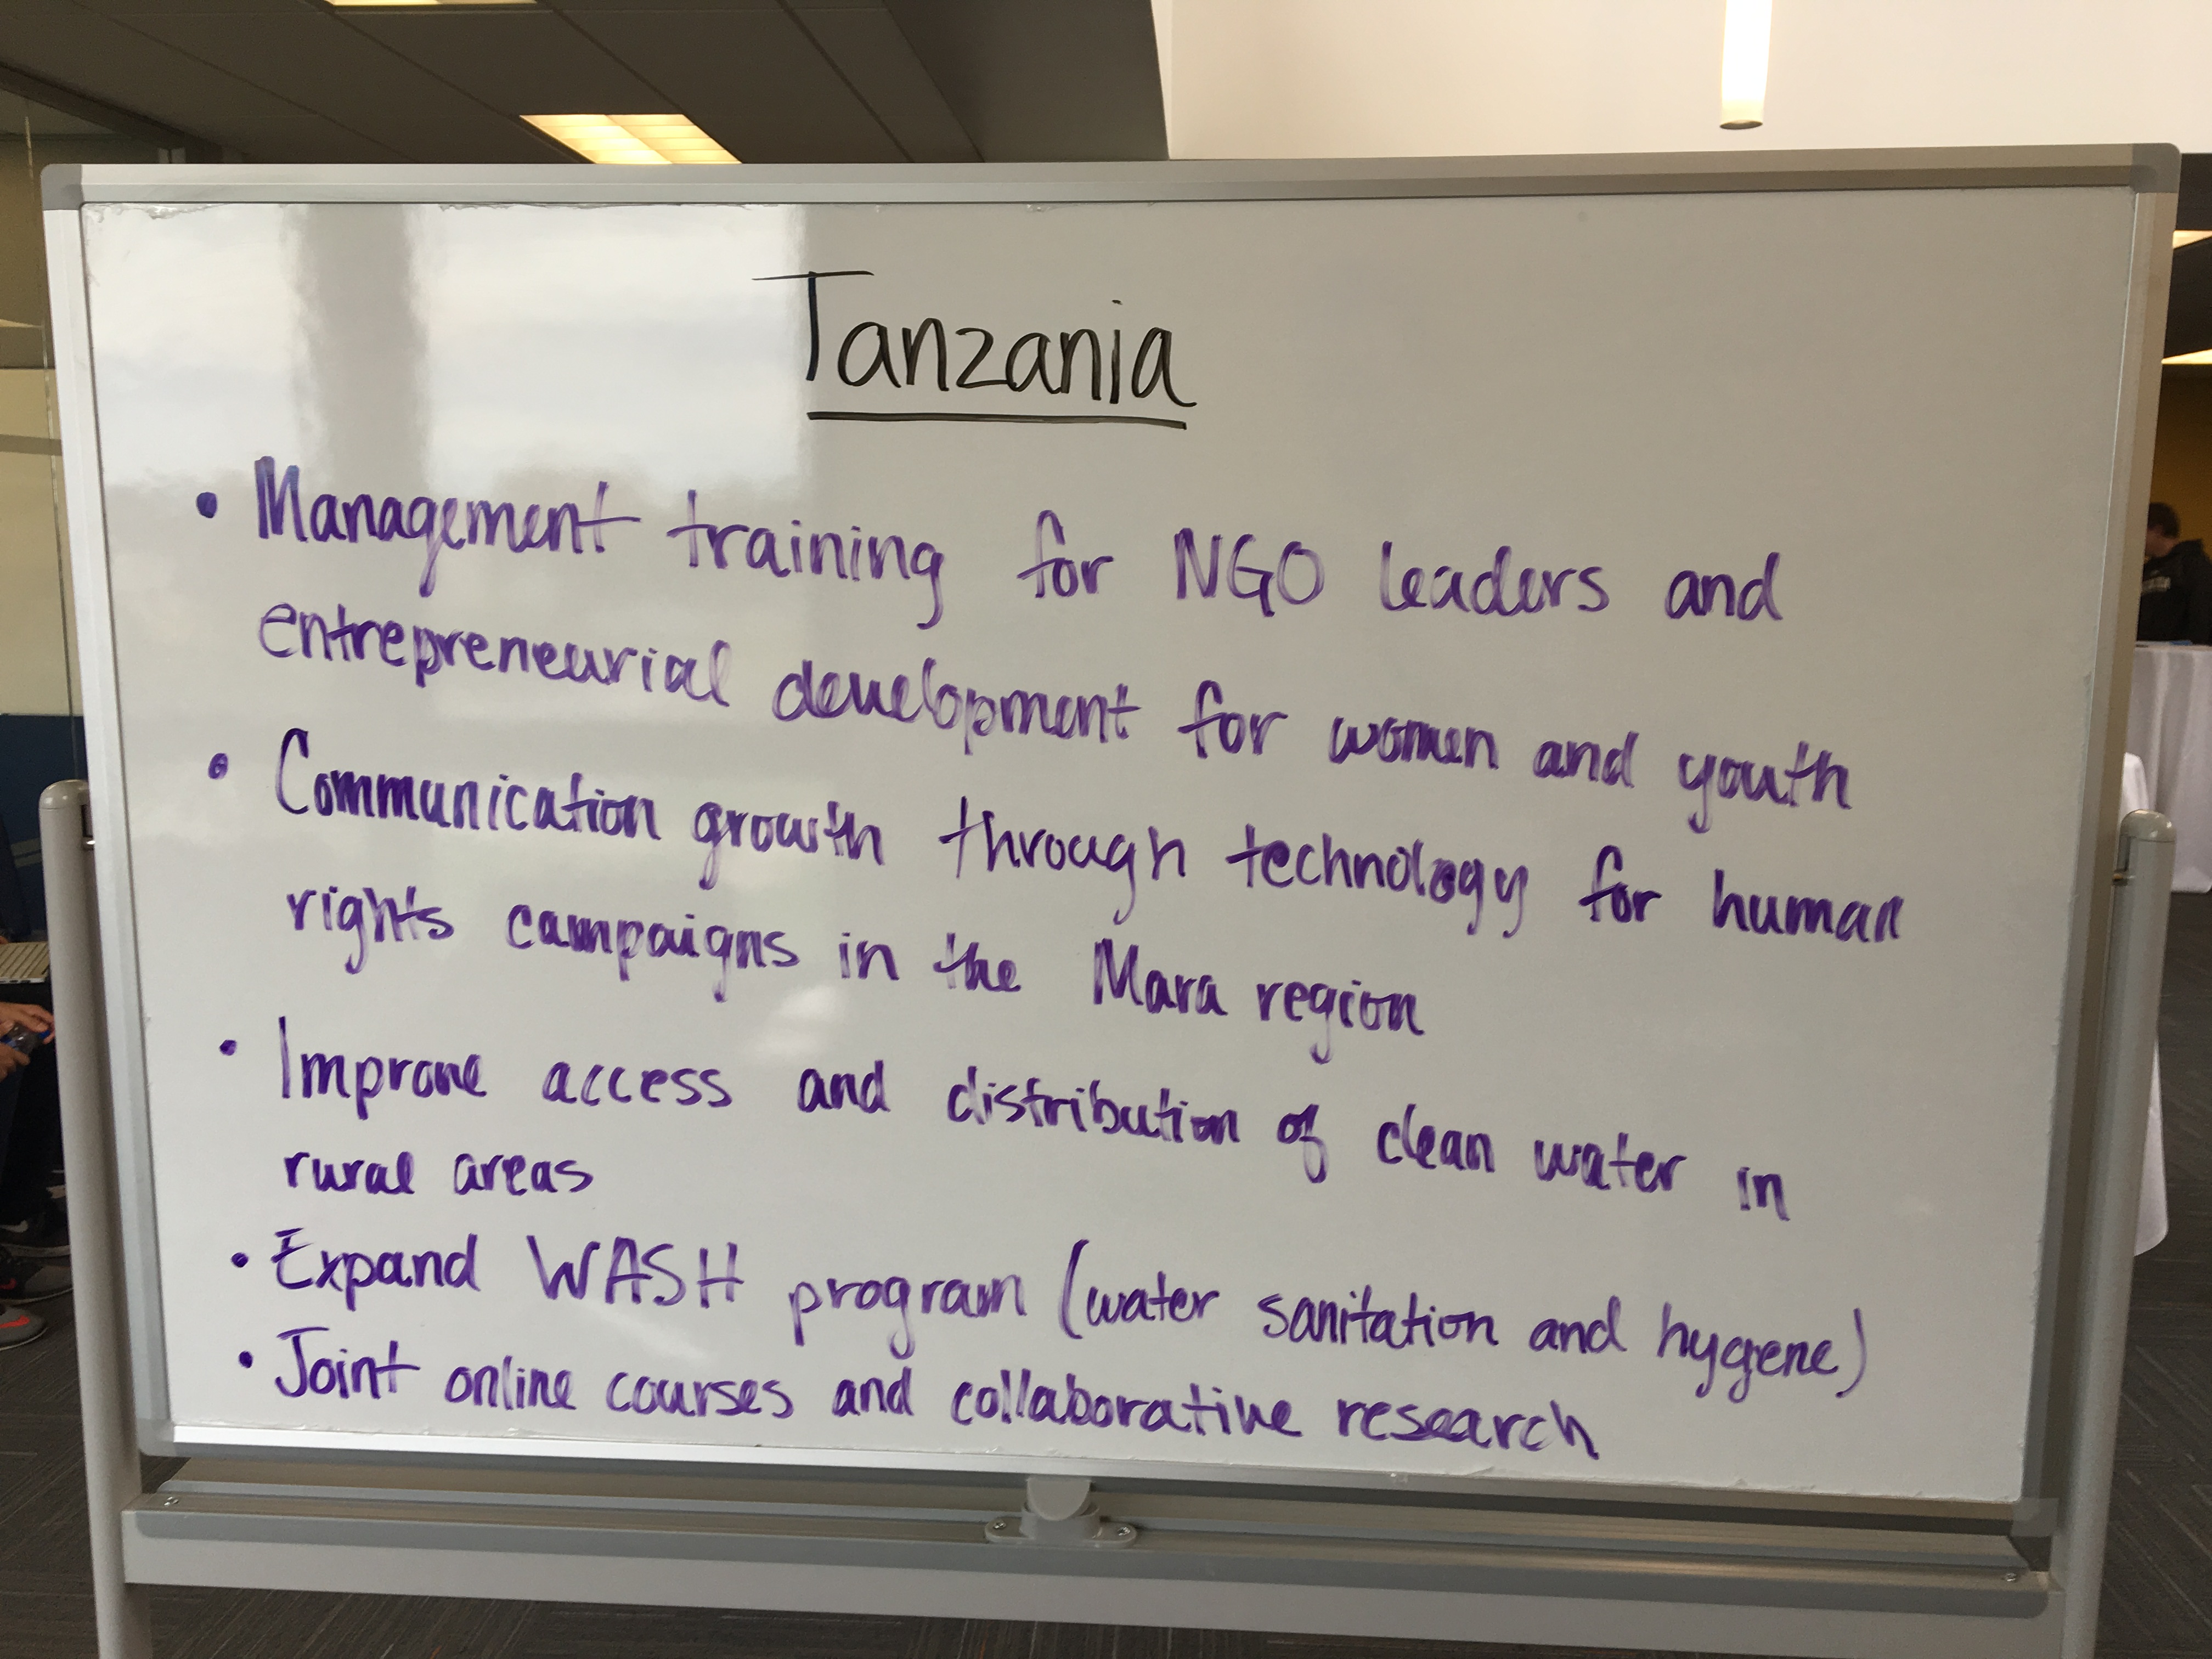 Tanzania
• Management training for NGO leaders and
entrepreneurial development for women and youth
• Communication growth through technology for human
rights campaigns in the Mara region
• Improve access and distribution of clean water in
rural areas
• Expand WASH program (water sanitation and hygiene)
• Joint online courses and collaborative research